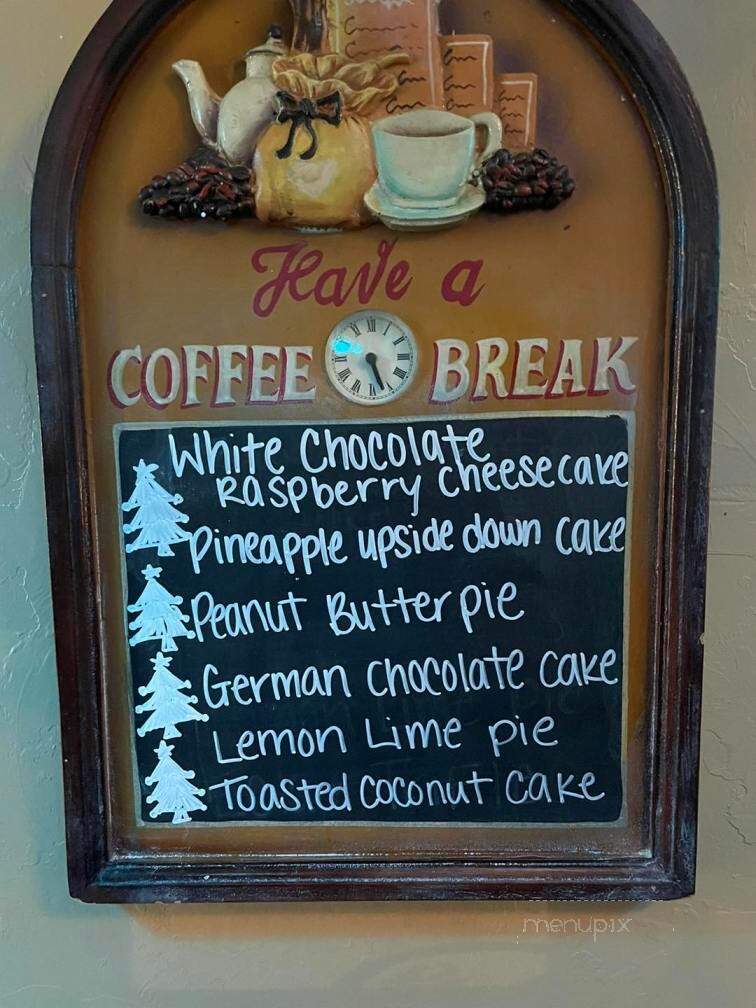 Have a
COFFEE BREAK
White Chocolate
Raspberry Cheesecake
Pineapple upside down cake
Peanut Butter pie
German Chocolate cake
Lemon Lime pie
Toasted coconut cake
menupix